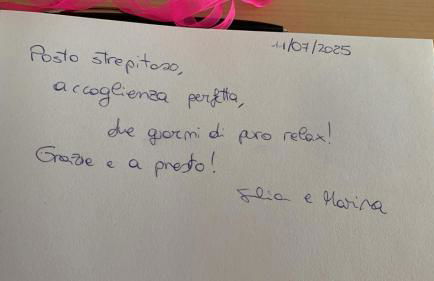 11/07/2025
Posto strepitoso,
accoglienza perfetta,
due giorni di puro relax!
Grazie e a presto!
e Marina